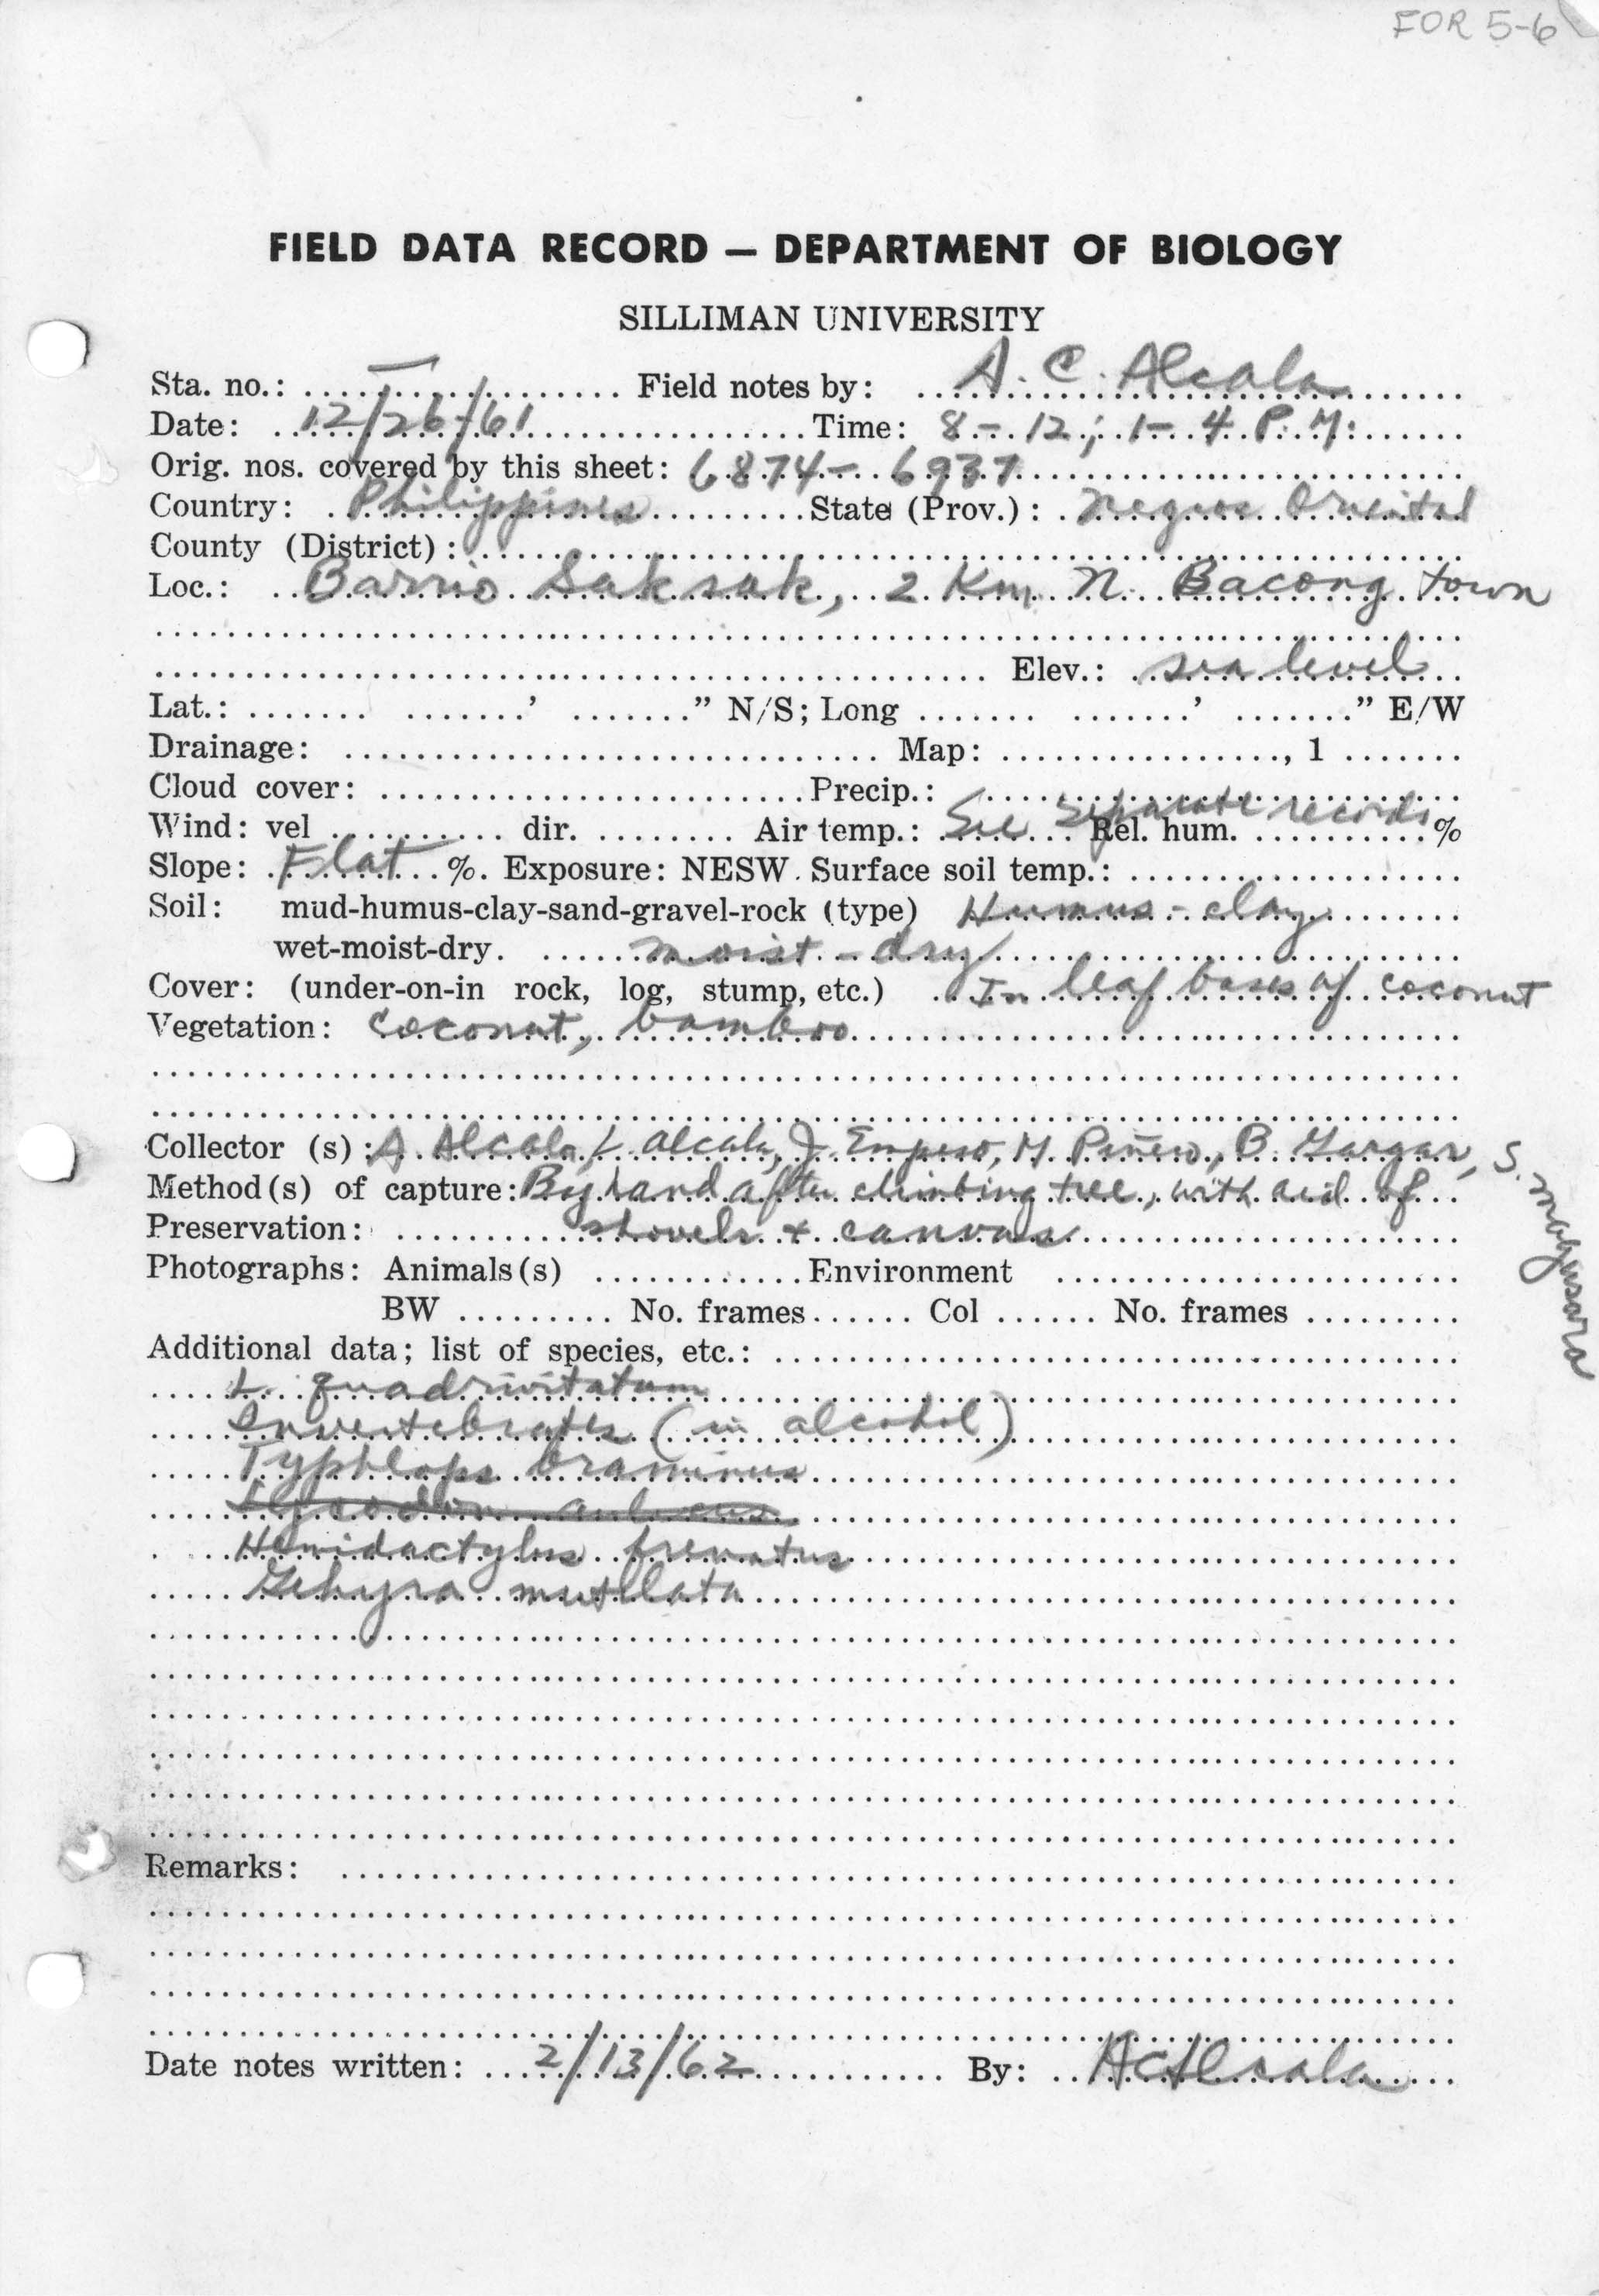 FOR 5-6
FIELD DATA RECORD — DEPARTMENT OF BIOLOGY
SILLIMAN UNIVERSITY
Sta. no.: I Field notes by: A. C. Alcala
Date: 12/26/61 Time: 8 - 12; 1 - 4 P.M.
Orig. nos. covered by this sheet: 6874 - 6937
Country: Philippines State (Prov.): Negros Oriental
County (District):
Loc.: Barrio Saksak, 2 Km N. Bacong town
Elev.: sea level
Lat.: ' " N/S; Long ' " E/W
Drainage: Map: , 1
Cloud cover: Precip.:
Wind: vel dir. Air temp.: See separate records Rel. hum. %
Slope: Flat %. Exposure: NESW. Surface soil temp.:
Soil: mud-humus-clay-sand-gravel-rock (type) Humus - clay
wet-moist-dry. moist - dry
Cover: (under-on-in rock, log, stump, etc.) In leaf bases of coconut
Vegetation: Coconut, bamboo
Collector (s): A. Alcala, L. Alcala, J. Empeso, M. Piñero, B. Gargar, S. Magusara
Method(s) of capture: By hand after climbing tree, with aid of
Preservation: shovels + canvas
Photographs: Animals(s) Environment
BW No. frames Col No. frames
Additional data; list of species, etc.:
L. quadrivitatum
Invertebrates (in alcohol)
Typhlops braminus
Lycodon aulicus
Hemidactylus frenatus
Gehyra mutilata
Remarks:
Date notes written: 2/13/62 By: ACAlcala